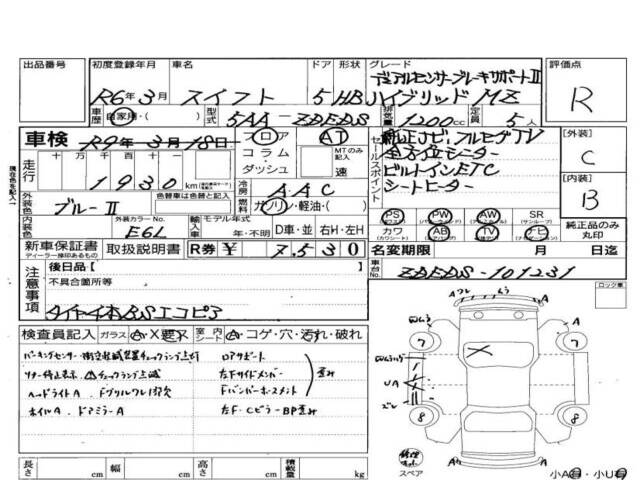 出品番号
初度登録年月
R6年3月
車名
スイフト
ドア
5
形状
HB
グレード
デュアルセンサーブレーキサポートII
ハイブリッド MZ
評価点
R
車歴
自家用・( )
型式
5AA-ZDEDS
排気量
1200cc
定員
5人
車検
R9年3月18日
フロア
コラム・
ダッシュ
AT
MTのみ記入
速
セールスポイント
純正ナビ・アルセグTV
全方位モニター
ビルトインETC
シートヒーター
[外装]
C
[内装]
B
走行
十万 万 千 百 十 一
1 9 3 0 km
冷房
AAC
燃料
ガソリン・軽油・( )
外装色
色替車は色替と記入
ブルーII
外装カラーNo.
E6L
輸入車
モデル年式
年・不明
D車・並 右H・左H
PS PW AW SR
(サンルーフ)
カワ AB TV ナビ
(カワシート)
純正品のみ丸印
新車保証書
ディーラー捺印あるもの
取扱説明書
R券 ¥ 7,530
名変期限 月 日迄
車台No.
ZDEDS-101231
注意事項
後日品[ ]
不具合箇所等
タイヤ4本BSエコピア
ロック車
検査員記入
ガラス A・X 悪・ヌ
室内シート A・コゲ・穴・汚れ・破れ
パーキングセンサー・衝突軽減装置チェックランプ点灯
ロアサポート
左Fサイドメンバー
歪み
ヘッドライトA
Fバンパーホースメント
ホイルA. ドアミラーA
左F・CピラーBP歪み
長さ cm 幅 cm 高さ cm 積載量 kg
7
7
8
8
UA
スペア
小A有・小U有